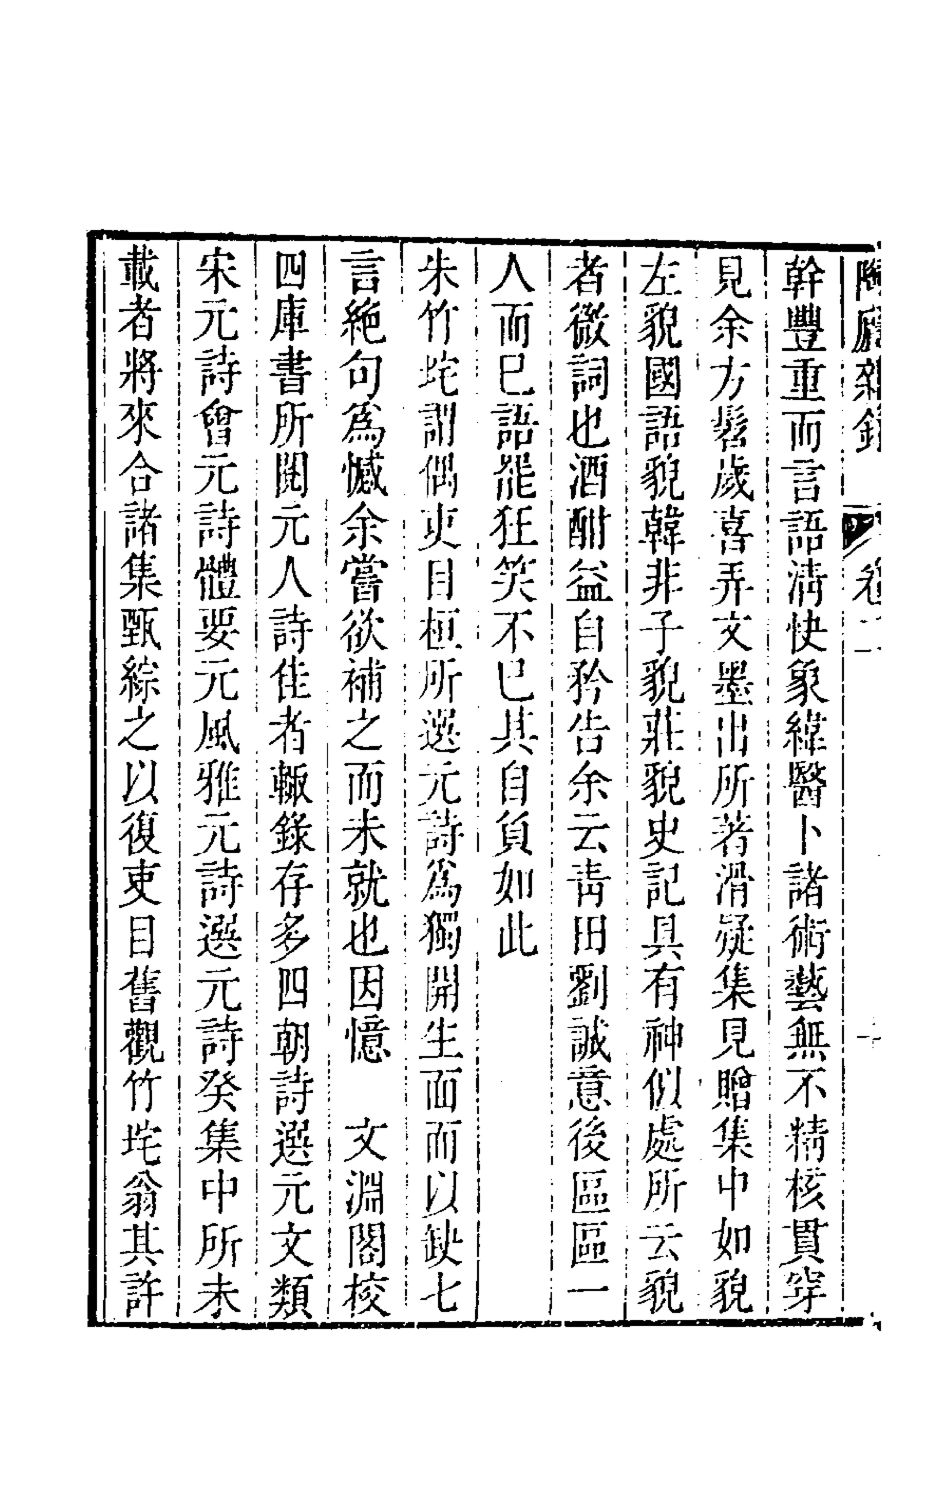 陶廬雜錄 卷二
幹豐重而言語清快象緯醫卜諸術藝無不精核貫穿
見余方髫歲喜弄文墨出所著滑疑集見贈集中如貌
左貌國語貌韓非子貌莊貌史記具有神似處所云貌
者微詞也酒酣益自矜告余云青田劉誠意後區區一
人而已語罷狂笑不已其自負如此
朱竹垞謂偶吏目桓所選元詩為獨開生面而以缺七
言絕句為憾余嘗欲補之而未就也因憶　文淵閣校
四庫書所閱元人詩佳者輙錄存多四朝詩選元文類
宋元詩會元詩體要元風雅元詩選元詩癸集中所未
載者將來合諸集甄綜之以復吏目舊觀竹垞翁其許